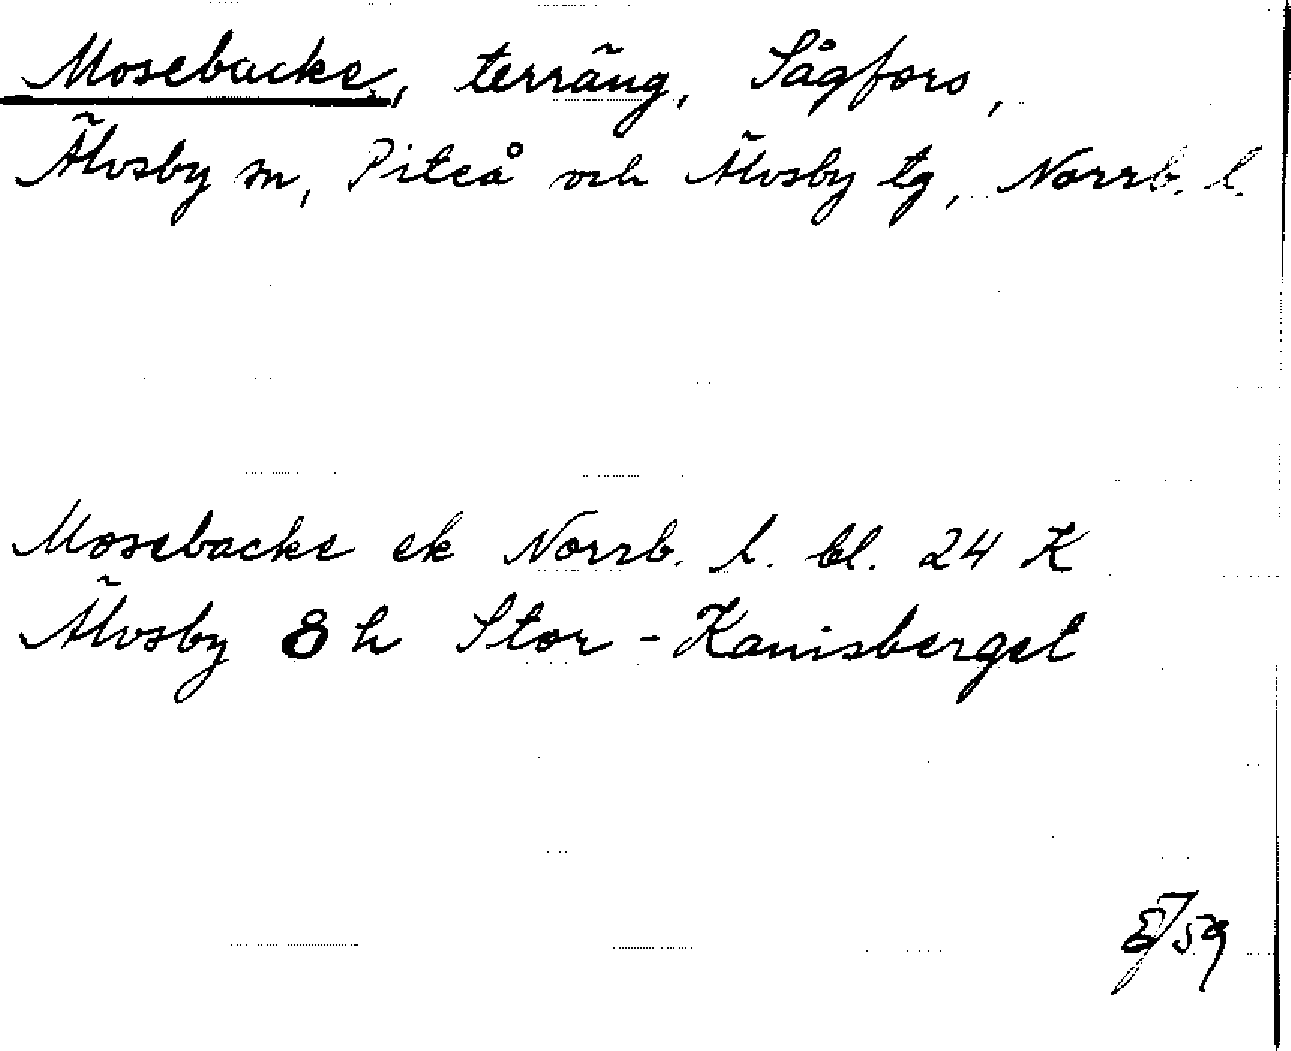 Mosebacke, terräng, Sågfors,
Älvsby sn, Piteå och Älvsby tg, Norrb. l.
Mosebacke ek Norrb. l. bl. 24 K
Älvsby 8 h Stor-Kanisberget
/59